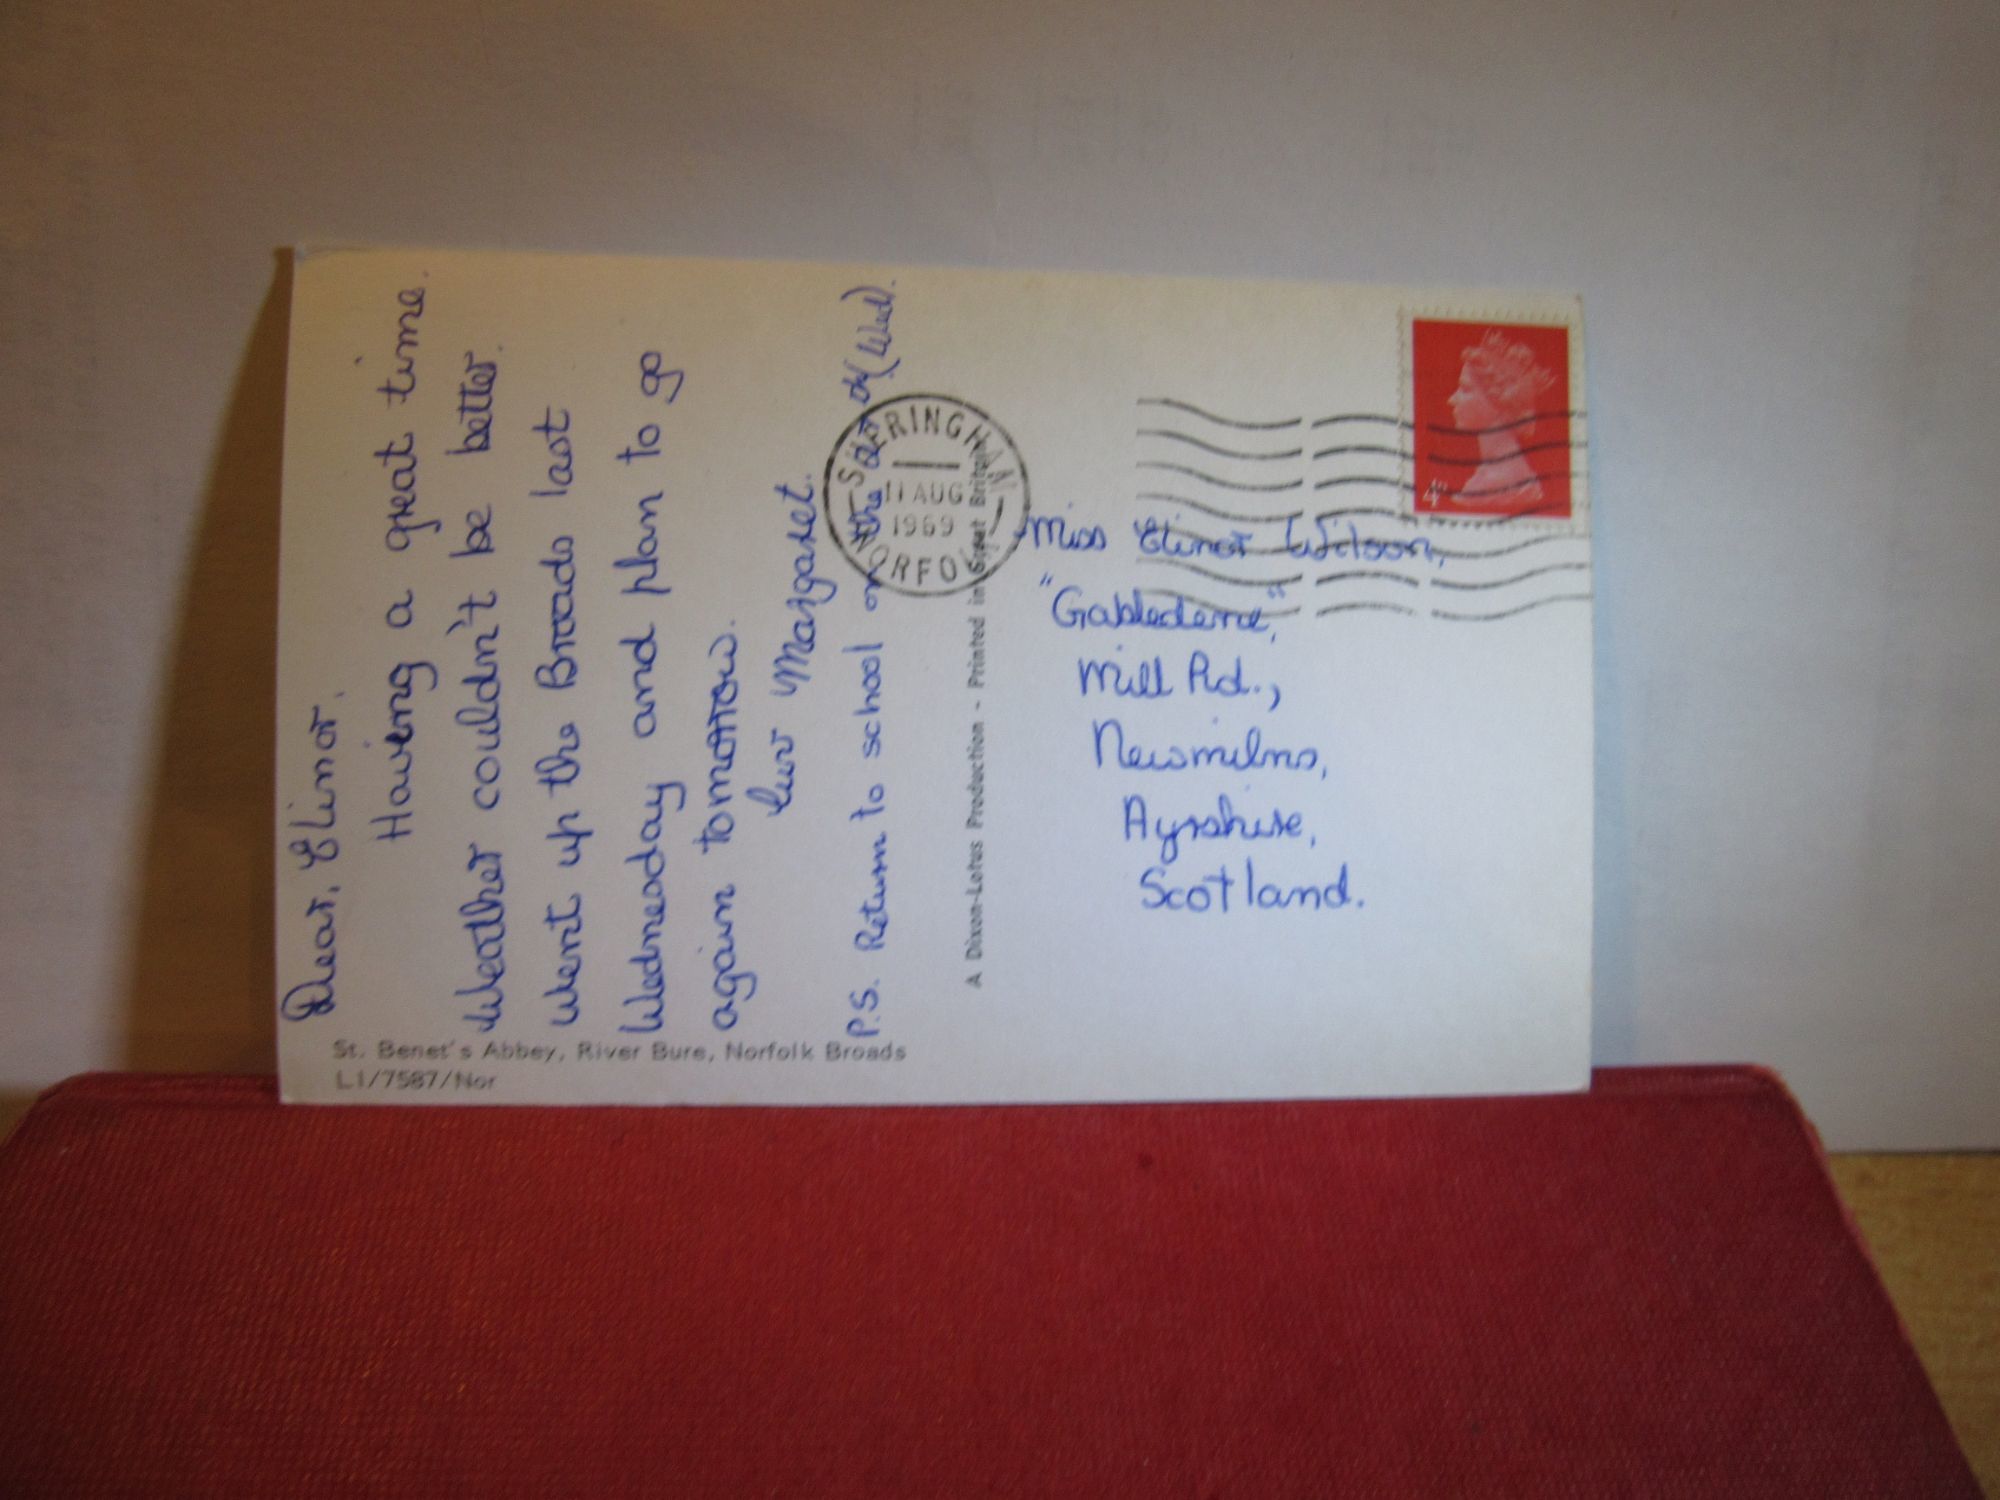 Dear, Elinor.
Having a great time.
Weather couldn't be better.
Went up the Broads last
Wednesday and plan to go
again tomorrow.
luv Margaret.
P.S. Return to school on the (Wed).
St. Benet's Abbey, River Bure, Norfolk Broads
L1/7587/Nor
A Dixon-Lotus Production - Printed in Great Britain
SHERINGHAM
11 AUG
1969
NORFOLK
4D
Miss Elinor Wilson,
"Gabledene",
Mill Rd.,
Newmilns,
Ayrshire,
Scotland.